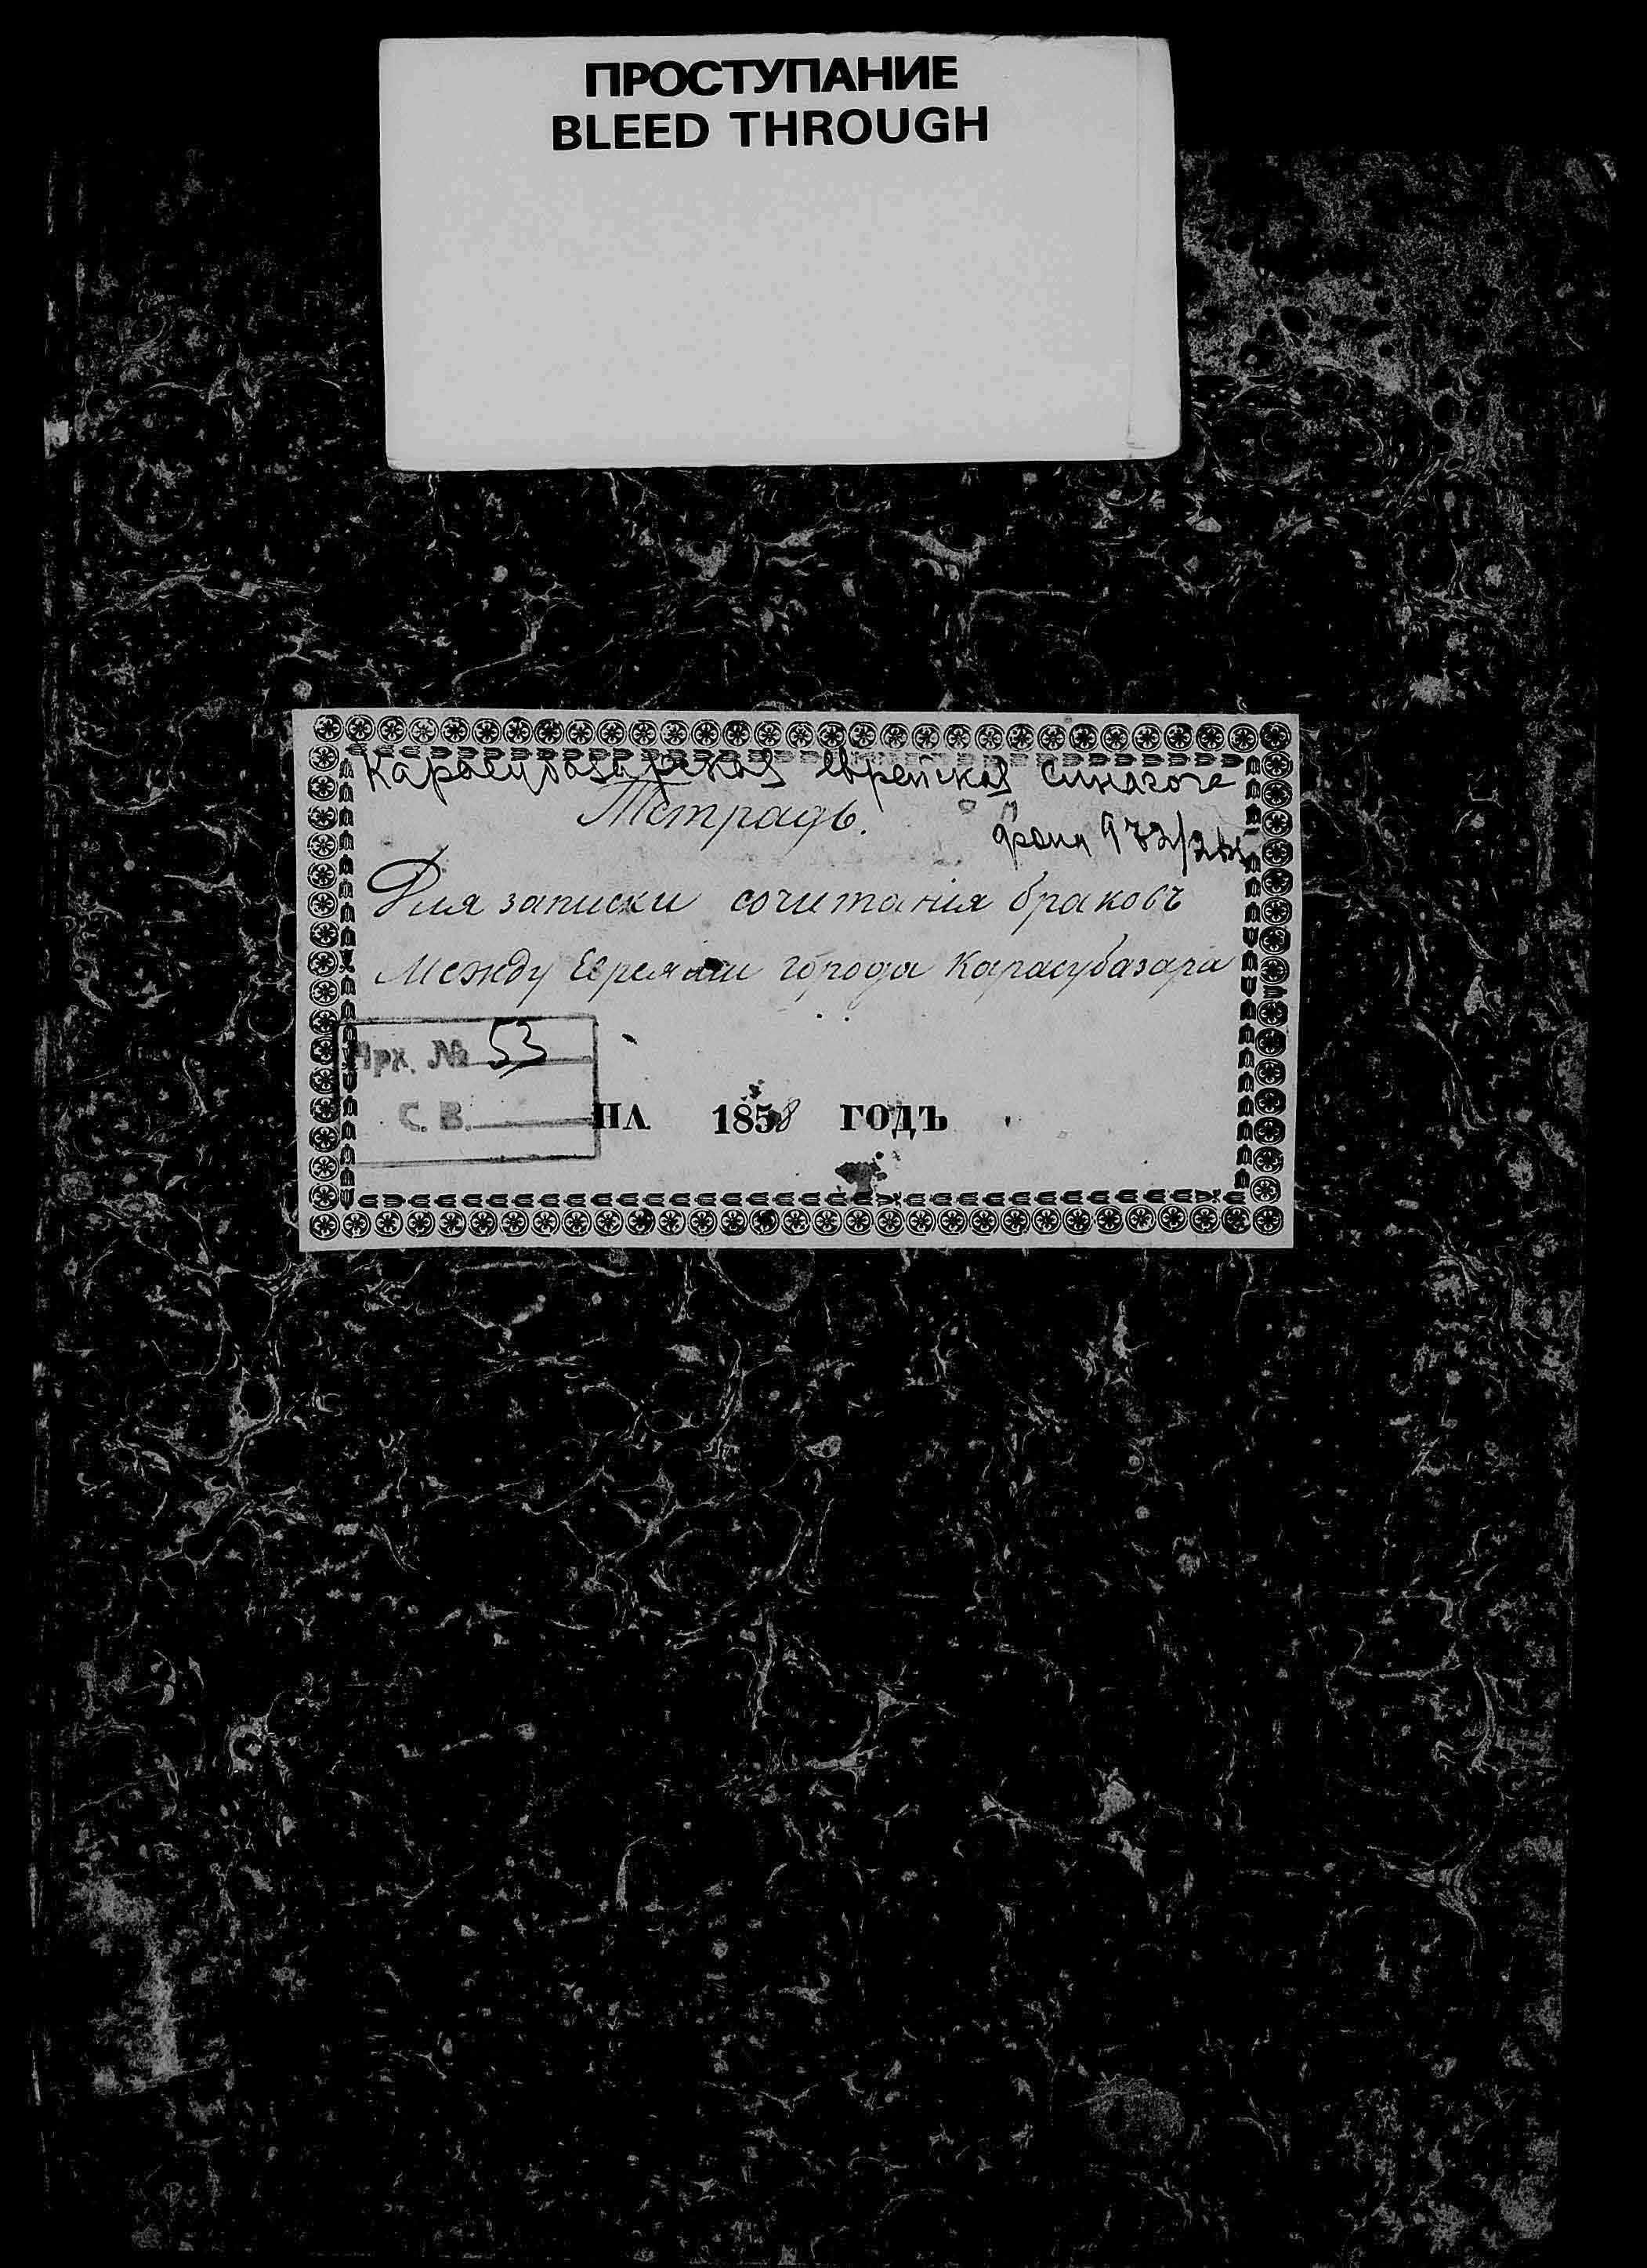 ПРОСТУПАНИЕ
BLEED THROUGH
Карасубазарская еврейская синагога
Тетрадь.
фонд 972/
Для записки сочитанія браковъ
Между Евреями города Карасубазара
Арх. № 53
С. В.
НА 1858 ГОДЪ